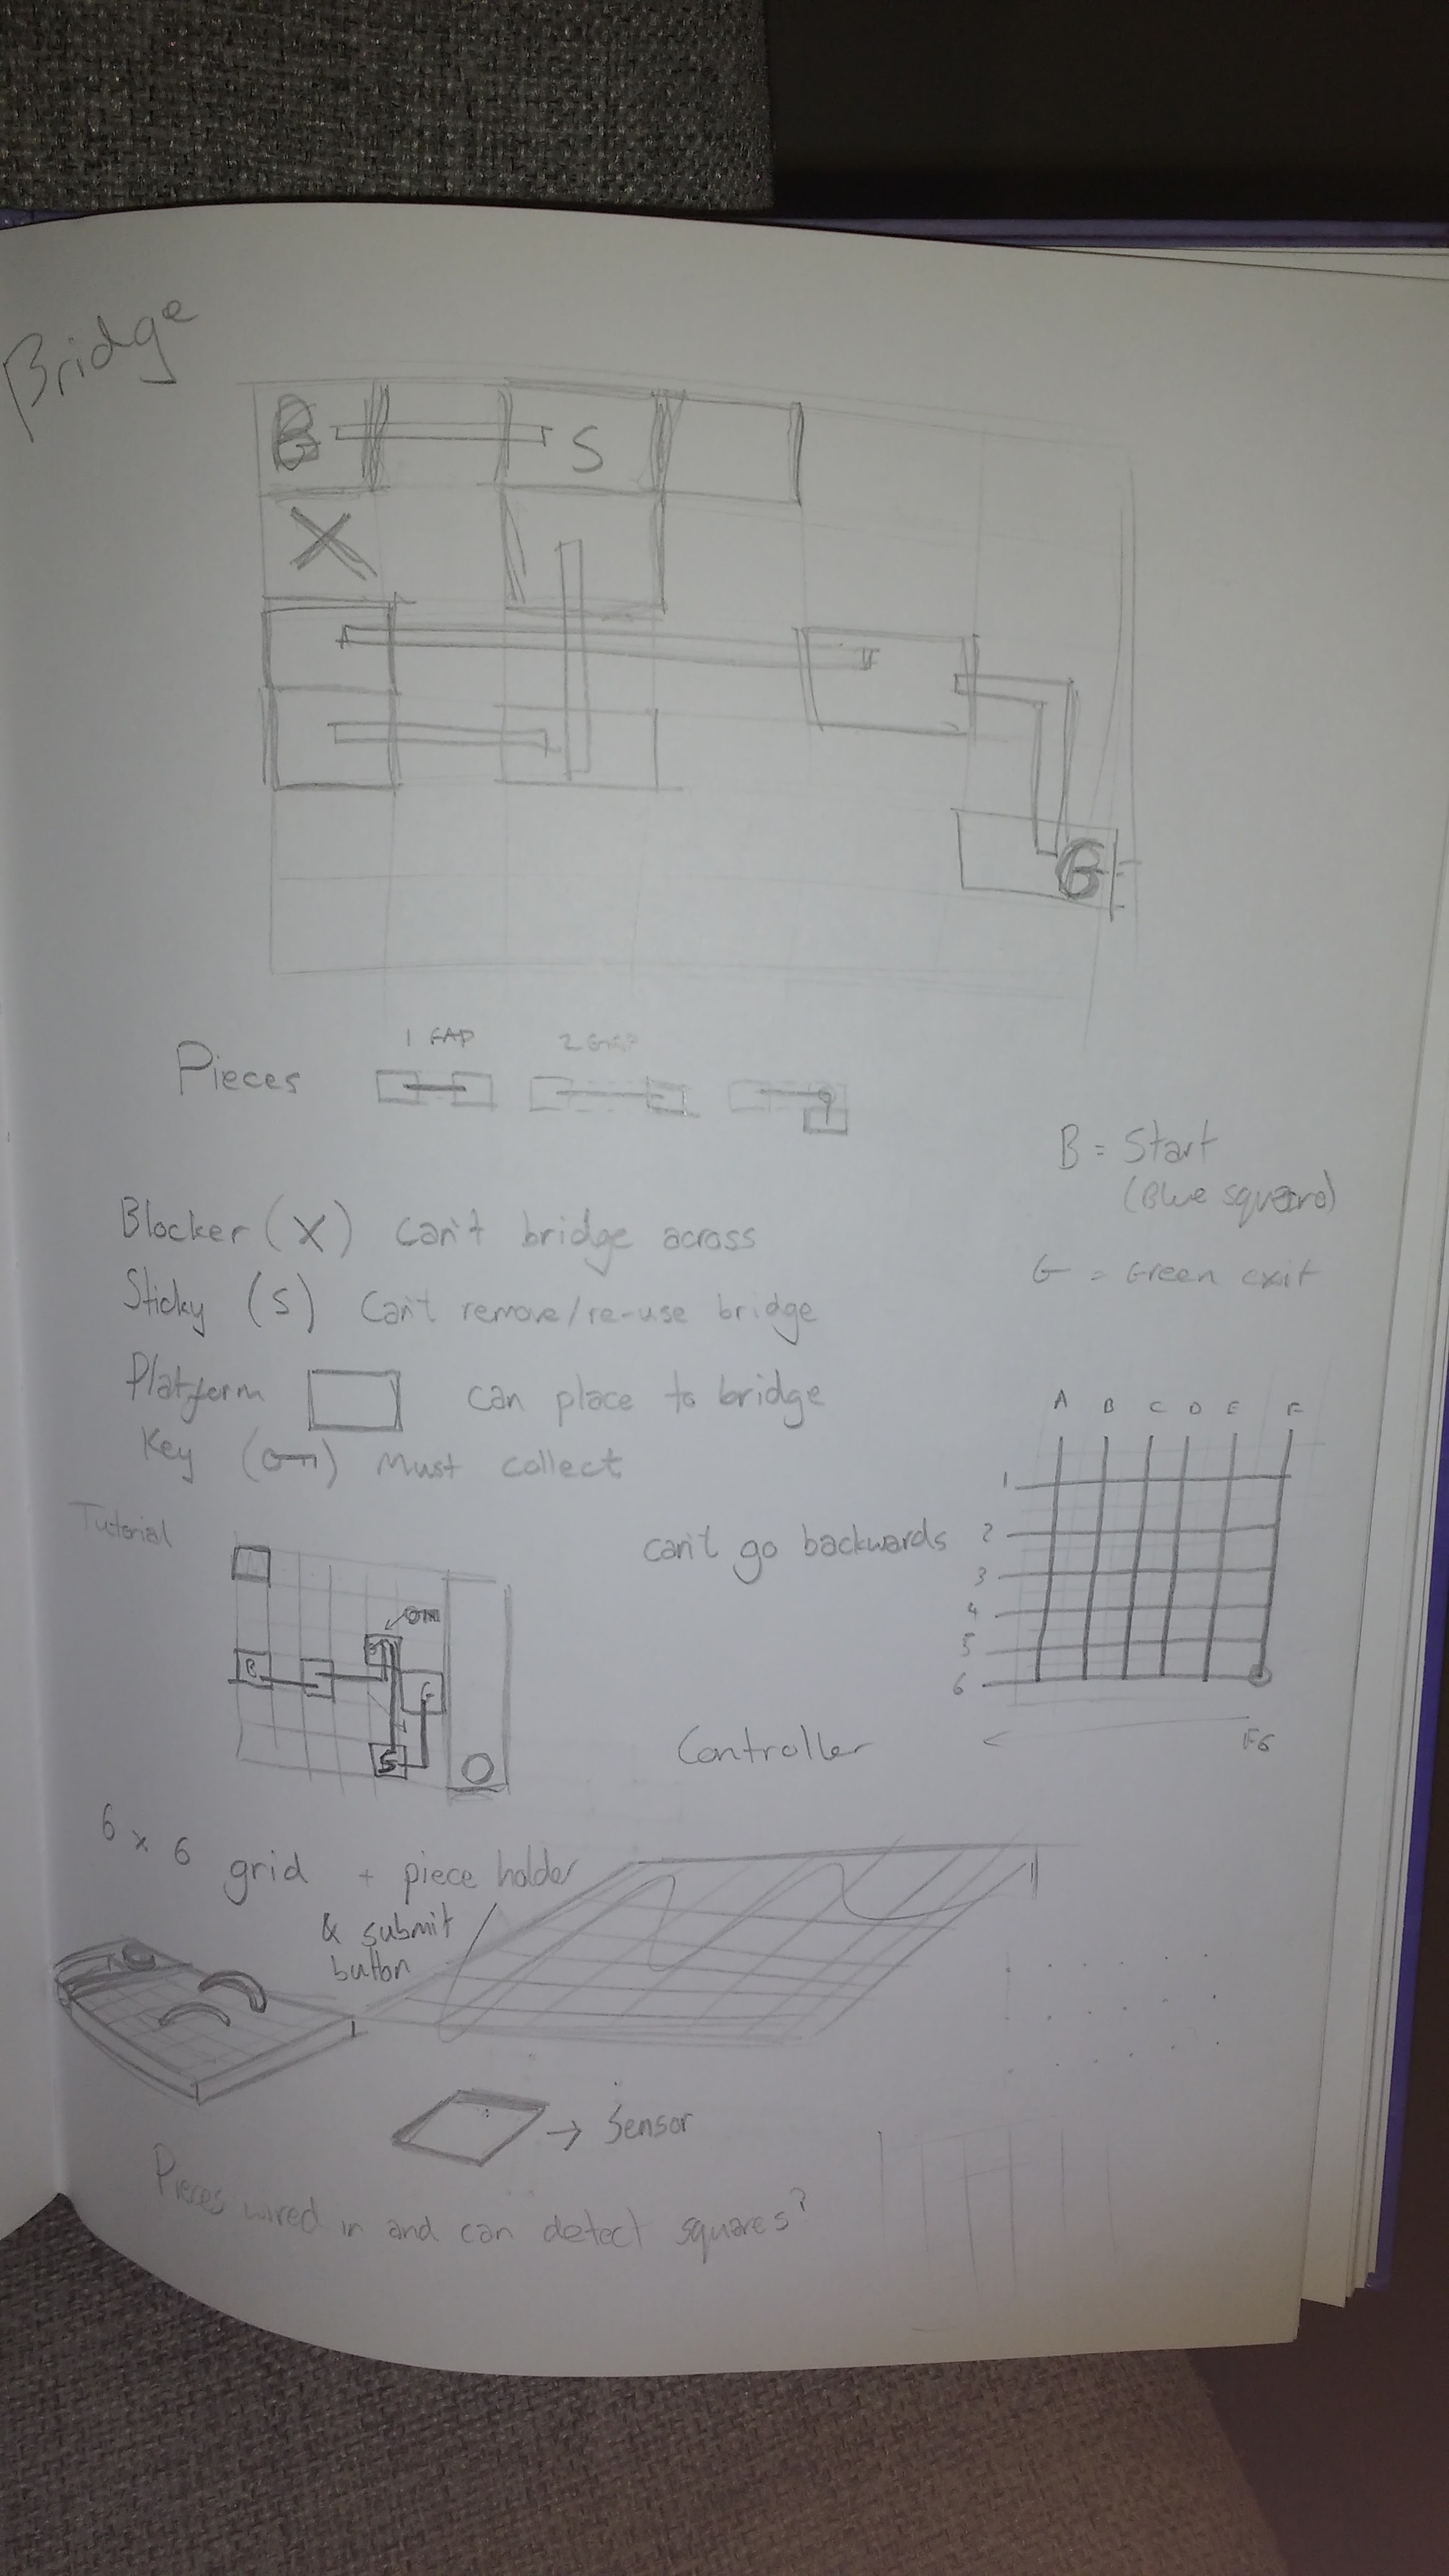 Bridge
B S
X
G
1 GAP 2 GAP
Pieces
B = Start
(Blue square)
G = Green exit
Blocker (X) Can't bridge across
Sticky (S) Can't remove/re-use bridge
Platform can place to bridge
Key ( ) Must collect
A B C D E F
1
2
3
4
5
6
F6
Tutorial
can't go backwards
B
G
S
Controller
6 x 6 grid + piece holder
& submit
button
→ Sensor
Pieces wired in and can detect squares?